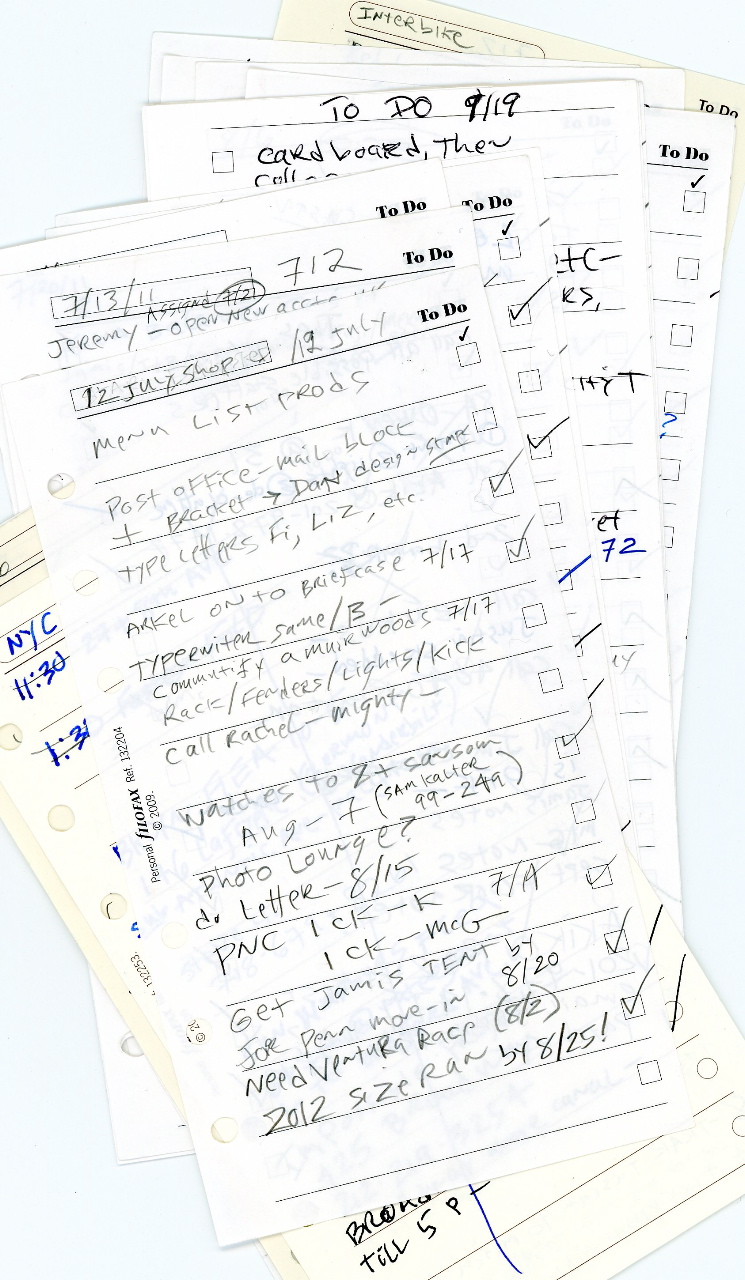 Interbike
To Do
TO DO 9/19
cardboard, Then
To Do
To Do
To Do
712
To Do
7/13/11
Assigned 7/21
Jeremy - open New accts
To Do
12 July Shop
/12 July
menu List prods
Post office-mail block
+ Bracket → Dan design stmp
type Letters Fi, Liz, etc.
ARKEL ON TO BRIEFCASE 7/17
TYPERWITER same/B -
Commutify a muirwoods 7/17
Rack/Fenders/Lights/Kick
Call Rachel - mighty -
Watches to 8+ sansom
Aug - 7 (SAM KALTER
99-249)
photo Lounge?
do Letter - 8/15
PNC 1 CK - K 7/A
1 CK - McG
Get Jamis TENT by
8/20
Joe Penn move-in
Need Ventura Race (8/2)
2012 size Ran by 8/25!
?
et
72
NYC
11:30
1:31
Personal FILOFAX Ref. 132204
© 2009.
till 5 P